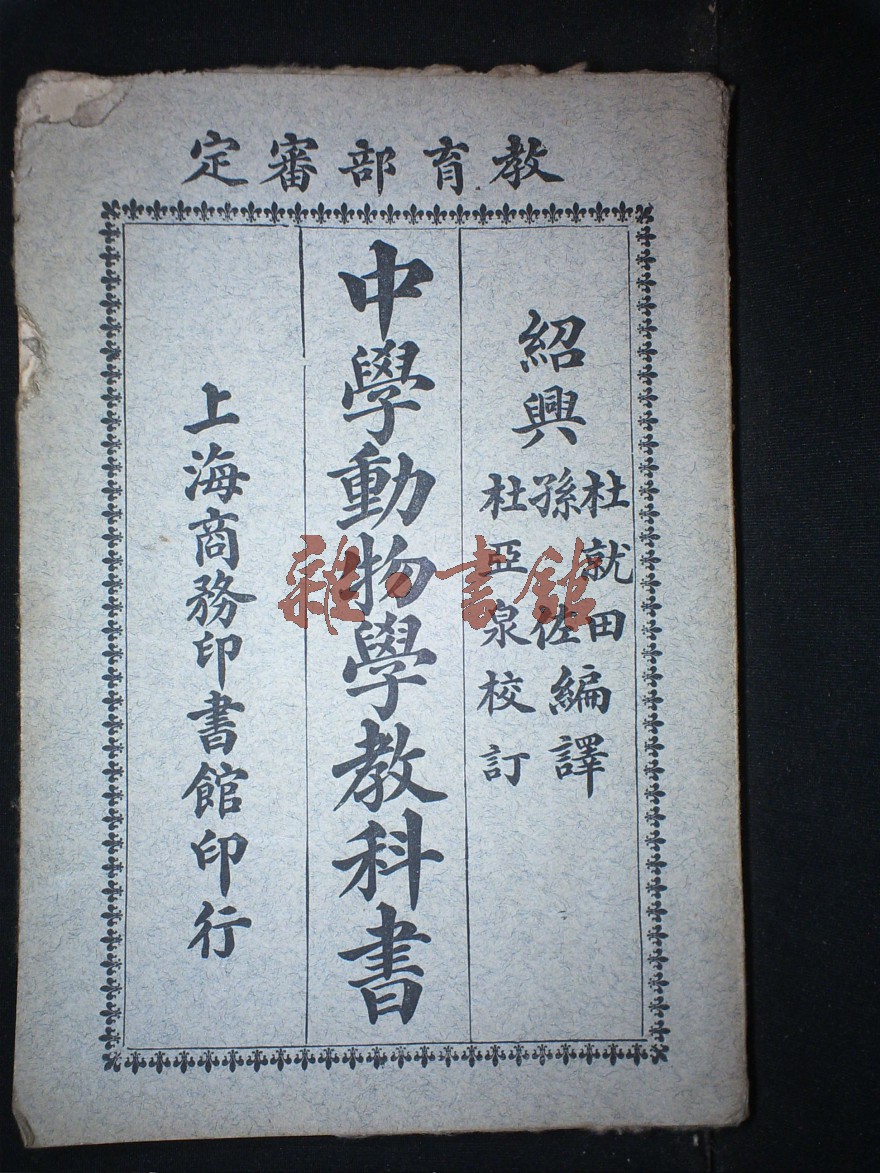 教育部審定
紹興
杜就田
孫佐
編譯
杜亞泉校訂
中學動物學教科書
上海商務印書館印行
雜·書館